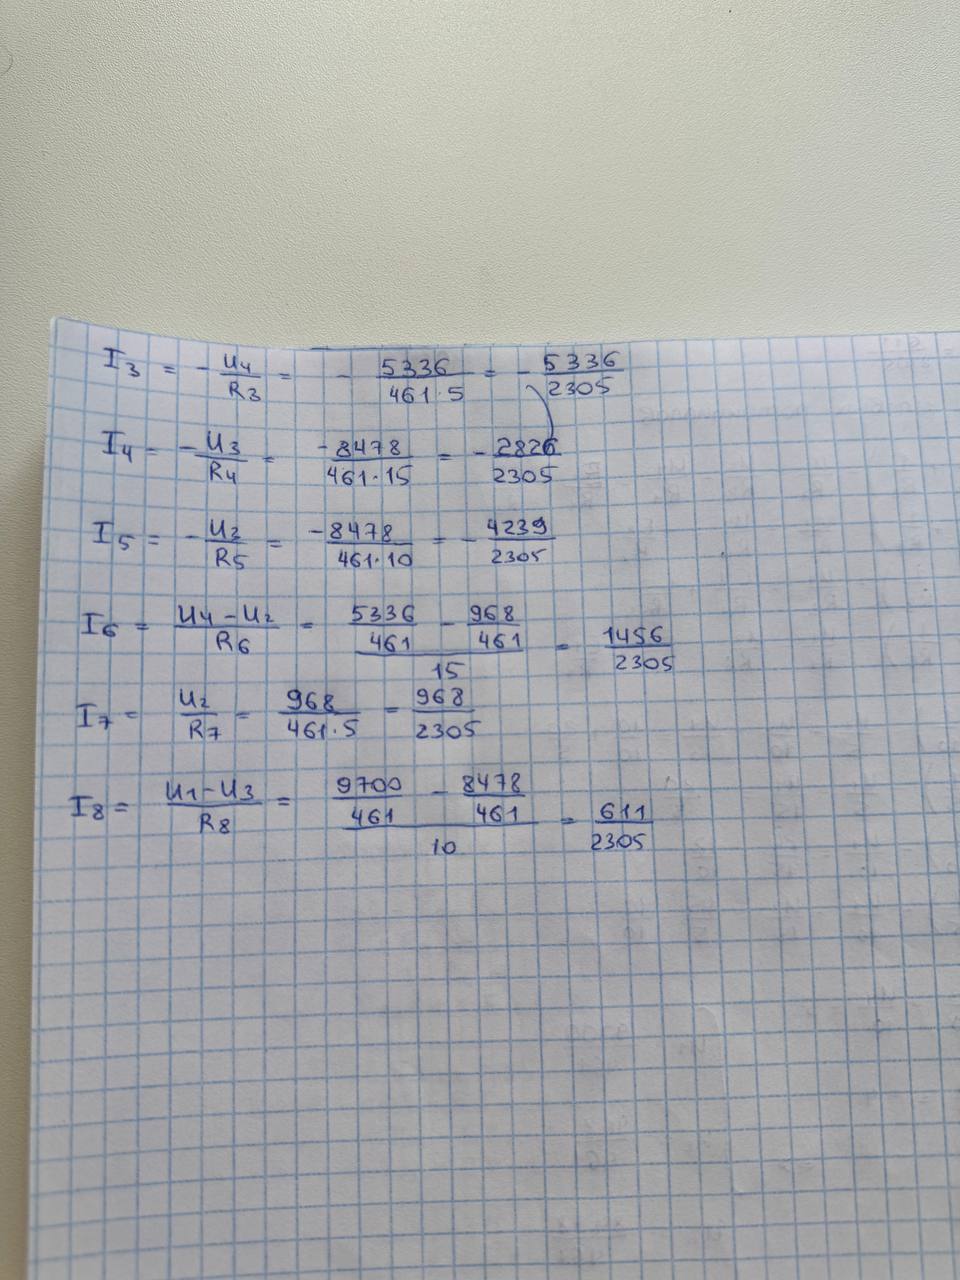 I₃ = - U₄/R₃ = - 5336/(461·5) = - 5336/2305
I₄ = - U₃/R₄ = -8478/(461·15) = - 2826/2305
I₅ = - U₃/R₅ = -8478/(461·10) = - 4239/2305
I₆ = (U₄ - U₂)/R₆ = (5336/461 - 968/461)/15 = 1456/2305
I₇ = U₂/R₇ = 968/(461·5) = 968/2305
I₈ = (U₁ - U₃)/R₈ = (9700/461 - 8478/461)/10 = 611/2305